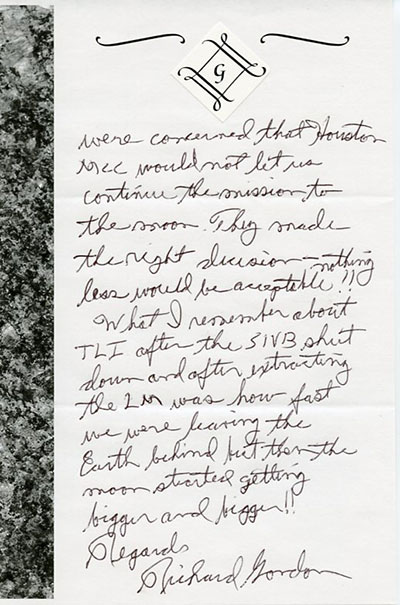 G
were concerned that Houston
MCC would not let us
continue the mission to
the moon. They made
the right decision - nothing
less would be acceptable!!
What I remember about
TLI after the SIVB shut
down and after extracting
the LM was how fast
we were leaving the
Earth behind but then the
moon started getting
bigger and bigger!!
Regards
Richard Gordon